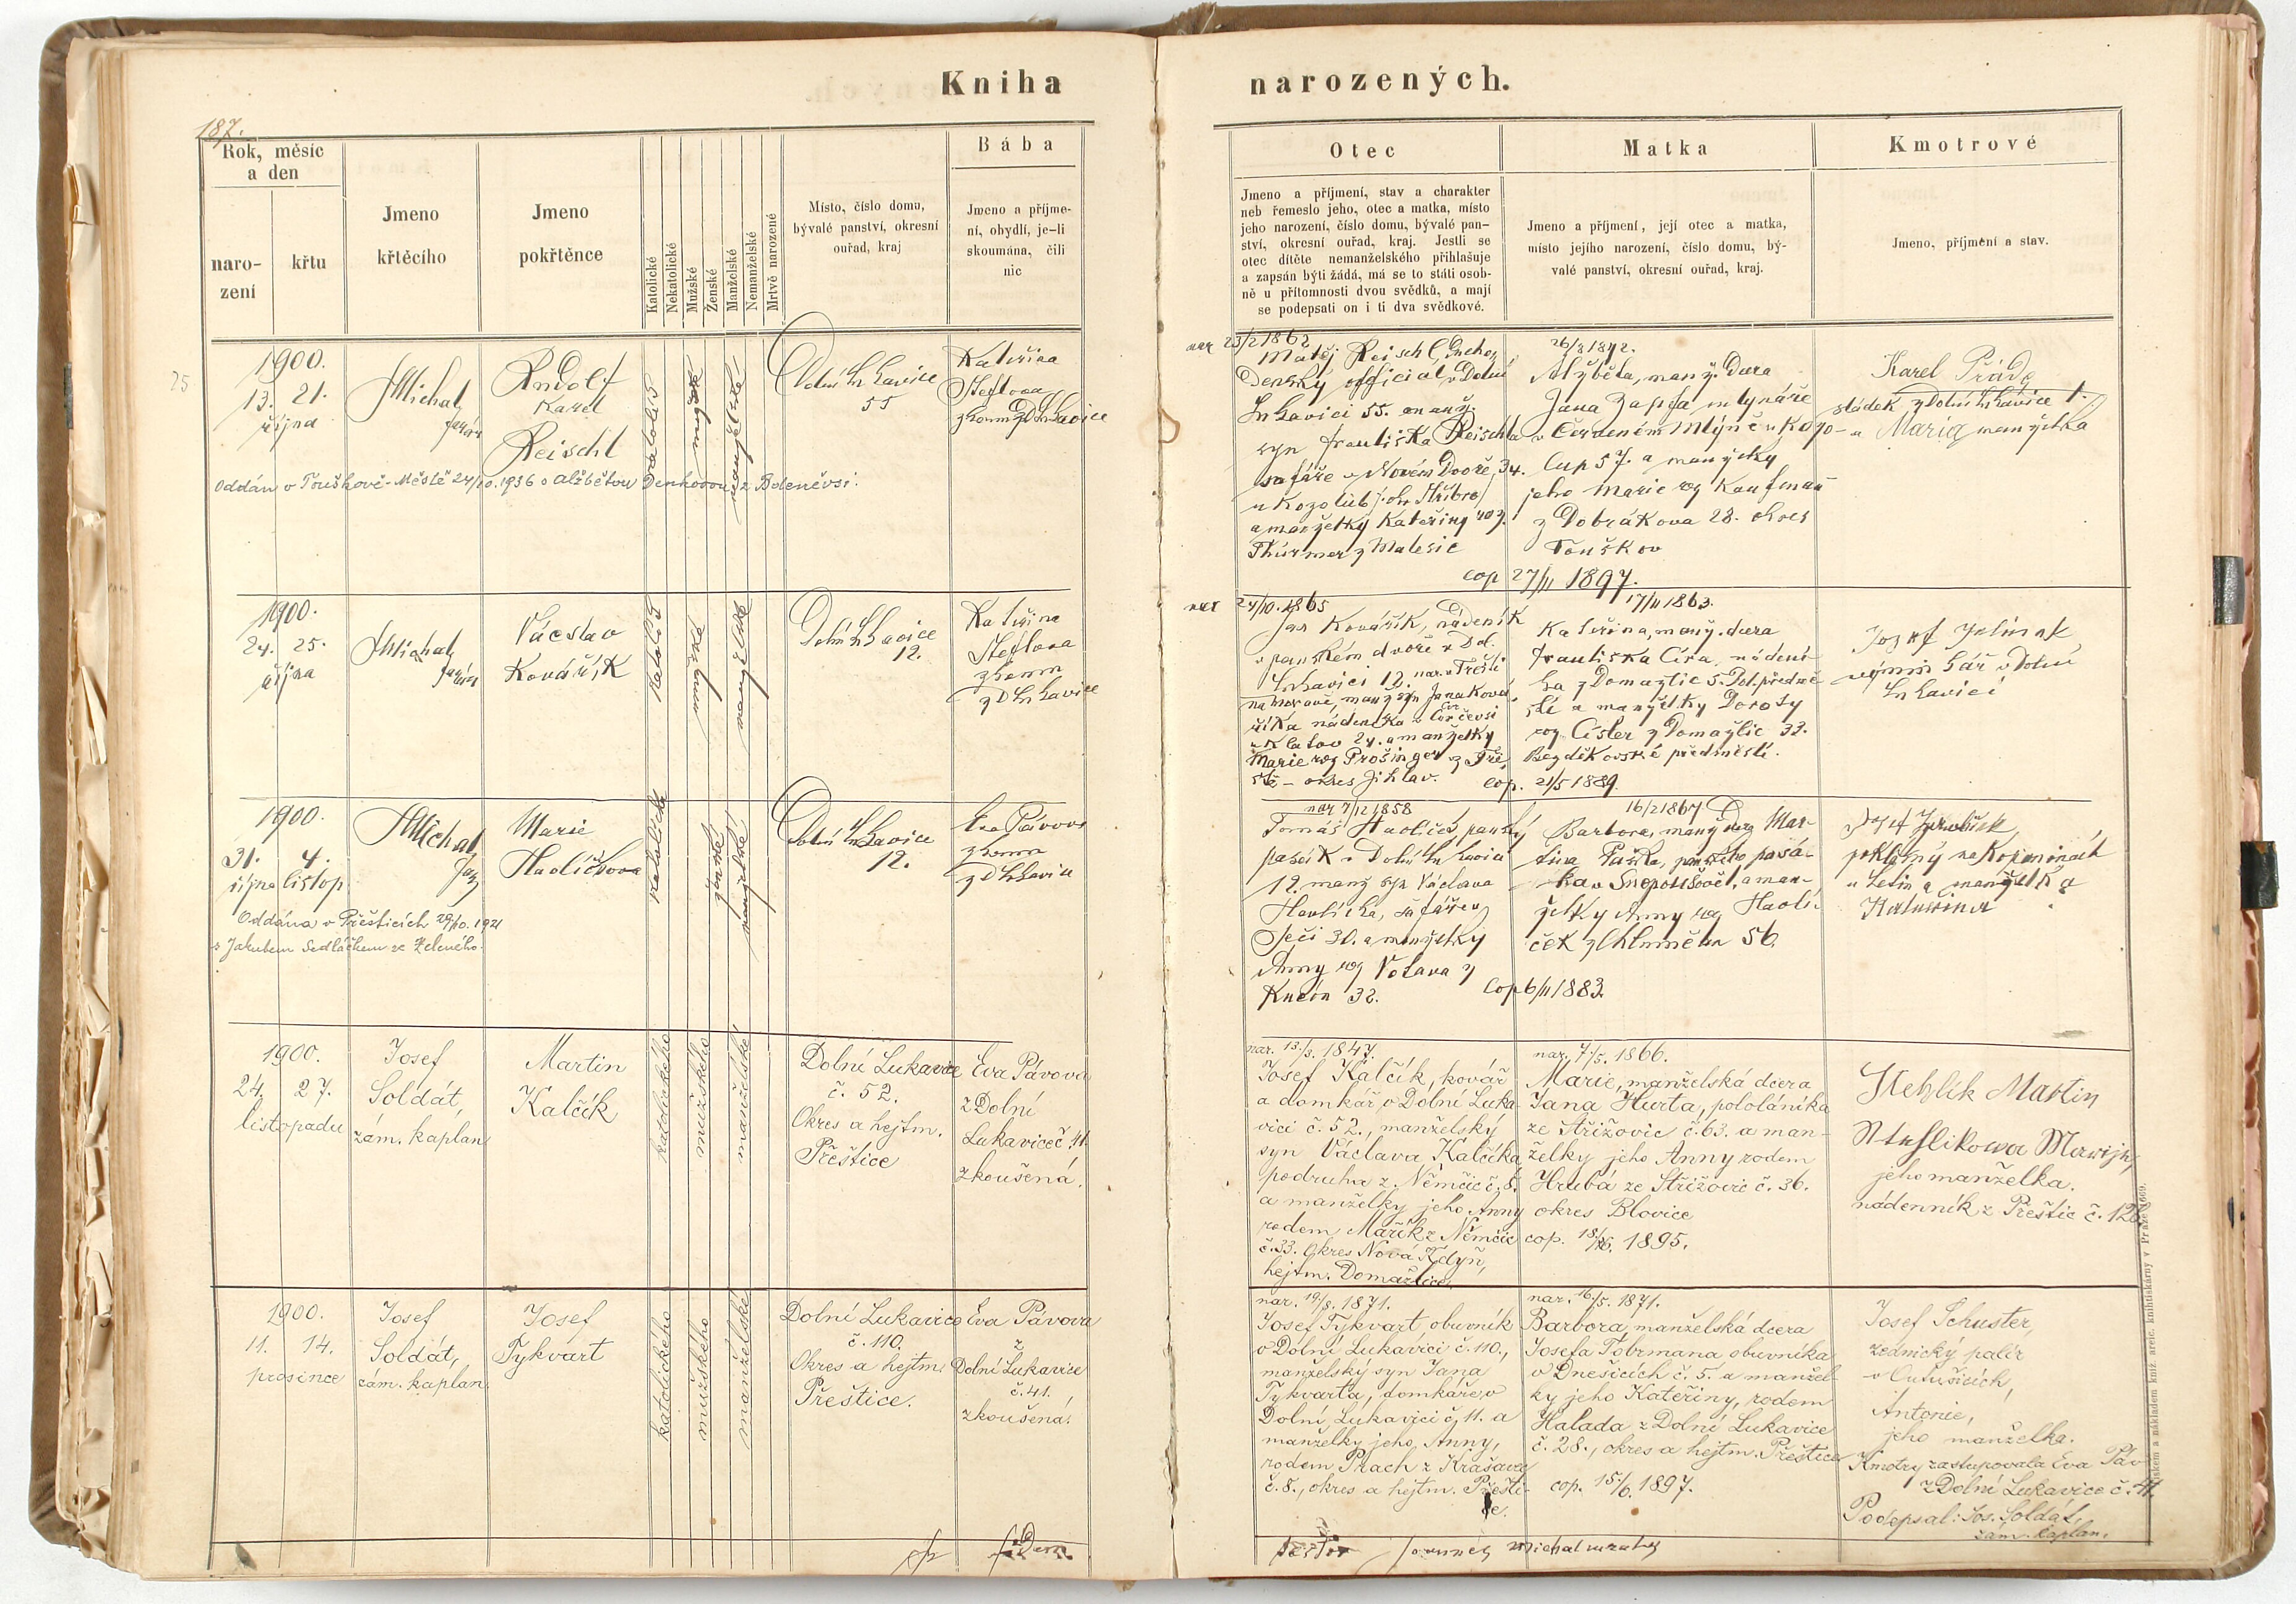 Kniha
narozených.
187.
Rok, měsíc
a den
naro-
zení
křtu
Jmeno
křtěcího
Jmeno
pokřtěnce
Katolické
Nekatolické
Mužské
Ženské
Manželské
Nemanželské
Mrtvě narozené
Místo, číslo domu,
bývalé panství, okresní
ouřad, kraj
Bába
Jmeno a příjme-
ní, obydlí, je-li
skoumána, čili
nic
Otec
Jmeno a příjmení, stav a charakter
neb řemeslo jeho, otec a matka, místo
jeho narození, číslo domu, bývalé pan-
ství, okresní ouřad, kraj. Jestli se
otec dítěte nemanželského přihlašuje
a zapsán býti žádá, má se to státi osob-
ně u přítomnosti dvou svědků, a mají
se podepsati on i ti dva svědkové.
Matka
Jmeno a příjmení, její otec a matka,
místo jejího narození, číslo domu, bý-
valé panství, okresní ouřad, kraj.
Kmotrové
Jmeno, příjmení a stav.
25
1900.
13. 21.
října
Michal
farář
Rudolf
Karel
Reischl
Dolní Lukavice
55
Kateřina
Steflova
zkoum z D Lukavice
Oddán v Touškově-Městě 24/10.1936 s Alžbětou
nar 23/2 1862
Matěj Reischl, důcho
denský official v Dolní
Lukavici 55. manž.
syn Františka Reischla
šafáře v Novém Dvoře, 34.
u Kozolub
a manželky Kateřiny roz.
Thürmer z Malesic
Alžběta, manž. dcera
Jana mlynáře
v Červeném Mlýně u Kozo-
lup 57. a manželky
jeho Marie roz Kaufman
z Dobrákova 28. okres
Touškov
cop 27/11 1897.
Karel
sládek z Dolní Lukavice 1.
a Marie manželka
1900.
24. 25.
října
Michal
farář
Václav
Kovářík
Dolní Lukavice
12.
Kateřina
Steflova
zkoum
z D Lukavice
nar 24/10.1865
Jan Kovářík, nádeník
v panském dvoře v Dol.
Lukavici 12. nar. v Třešti
na Moravě, manž syn Jana Ková
říka nádeníka
u Klatov 24. a manželky
Marie roz Prošinger z Tře
ště - okres Jihlav.
17/11 1863.
Kateřina, manž. dcera
Františka Císa, nádení-
ka z Domažlic 5. Dol. předmě-
stí a manželky Doroty
roz Cisler z Domažlic 33.
Bezděkovské předměstí.
cop. 21/5 1889.
Josef Jelínek
v Dolní
Lukavici
1900.
31. 4.
října listop
Michal
far
Marie
Havlíčkova
Dolní Lukavice
12.
Eva Pávova
zkoum
z D Lukavice
Oddána v Přešticích 29/10.1921
s Jakubem Sedláčkem ze Zeleného.
nar 7/12 1858
Tomáš Havlíček, panský
pasák v Dolní Lukavici
12. manž syn Václava
Havlíčka, šafáře v
Seči 30. a manželky
Anny roz Votava z
32.
16/2 1867
Barbora, manž dcera Mar-
tina Paška, panského pasá-
ka v Snopoušově, a man-
želky Anny roz Havlí-
ček z Chlumčan 56.
cop 6/11 1883.
Josef
a manželka
Kateřina
1900.
24. 27.
listopadu
Josef
Soldát,
zám. kaplan
Martin
Kalčík
katolického
mužského
manželské
Dolní Lukavice
č. 52.
Okres a hejtm.
Přeštice
Eva Pávova
z Dolní
Lukavice č. 41.
zkoušená.
nar. 13./3. 1847.
Josef Kalčík, kovář
a domkář v Dolní Luka-
vici č. 52., manželský
syn Václava Kalčíka,
podruha z Němčic č. 8.
a manželky jeho Anny
rodem Mařík z Němčic
č. 33. Okres Nová Kdyň,
hejtm. Domažlice.
nar. 7./5. 1866.
Marie, manželská dcera
Jana Hurta, pololáníka
ze Střížovic č. 63. a man-
želky jeho Anny rodem
Hrubá ze Střížovic č. 36.
okres Blovice
cop. 1895.
Steblik Martin
Steflikowa Marije,
jeho manželka.
nádenník z Přeštic č. 126.
1900.
11. 14.
prosince
Josef
Soldát,
zám. kaplan.
Josef
Tykvart
katolického
mužského
manželské
Dolní Lukavice
č. 110.
Okres a hejtm.
Přeštice.
Eva Pávova
z
Dolní Lukavice
č. 41.
zkoušená.
nar. 19./8. 1871.
Josef Tykvart, obuvník
v Dolní Lukavici č. 110.,
manželský syn Jana
Tykvarta, domkáře v
Dolní Lukavici č. 11. a
manželky jeho Anny,
rodem Prach z Krašovic
č. 8., okres a hejtm. Přešti-
ce.
nar. 16./5. 1871.
Barbora, manželská dcera
Josefa Tobrmana obuvníka
v Dnešicích č. 5. a manžel
ky jeho Kateřiny, rodem
Halada z Dolní Lukavice
č. 28., okres a hejtm. Přeštice
cop. 15./6. 1897.
Josef Schuster,
zednický palír
v Outušicích,
Antonie,
jeho manželka.
Kmotry zastupovala Eva Páv
z Dolní Lukavice č. 41.
Podepsal: Jos. Soldát,
zám. kaplan.